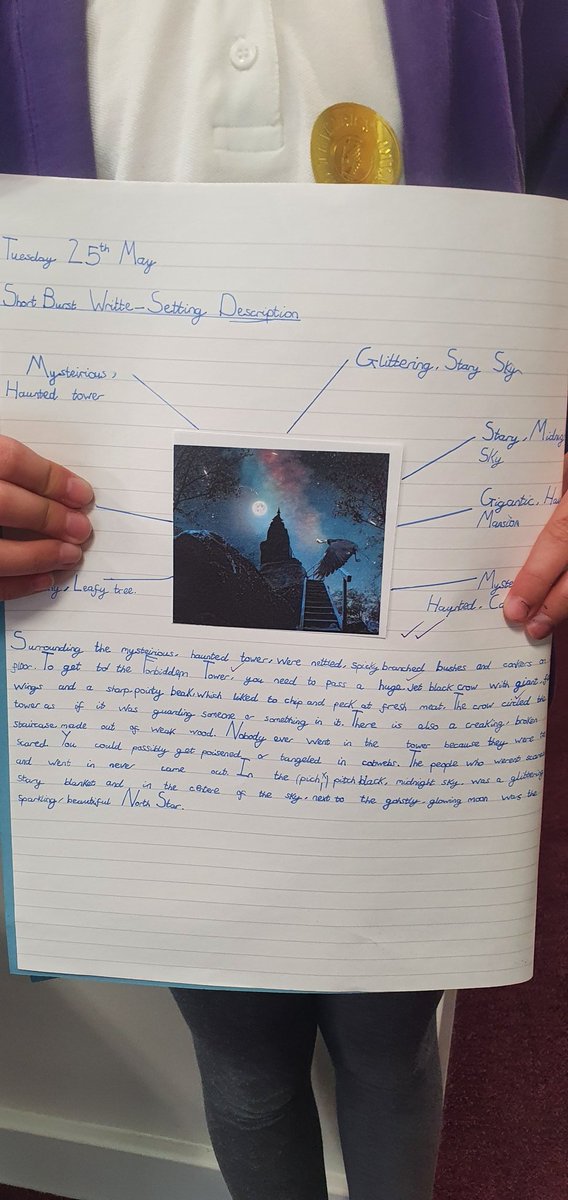 Tuesday 25th May
Short Burst Writte-Setting Description
Mysteirious,
Haunted tower
Glittering, Stary Sky
Stary, Midnig
Sky
Gigantic, Ha
Mansion
Leafy tree.
Myste
Haunted, Ca
Surrounding the mysteirous, haunted tower, were nettled, spicky branched bushes and conkers on
floor. To get to the Forbidden Tower, you need to pass a huge jet black crow with giant
wings and a sharp, pointy beak, which liked to chip and peck at fresh meat. The crow circled the
tower as if it was guarding someone or something in it. There is also a creaking, broken
staircase, made out of weak wood. Nobody ever went in the tower because they were to
scared. You could possitly get poisened, or tangeled in cobwebs. The people who werent scared
and went in never came out. In the (pich) pitch black, midnight sky, was a glittering
stary blanket and in the centere of the sky, next to the gahstly, glowing moon was the
sparkling, beautiful North Star.